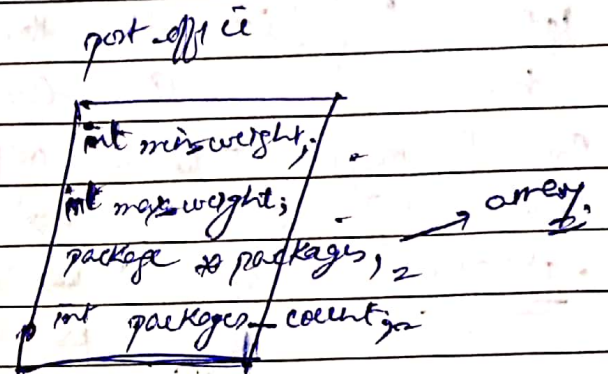 post office
int min_weight;
int max_weight;
package * packages, 2 → array
int packages_count;